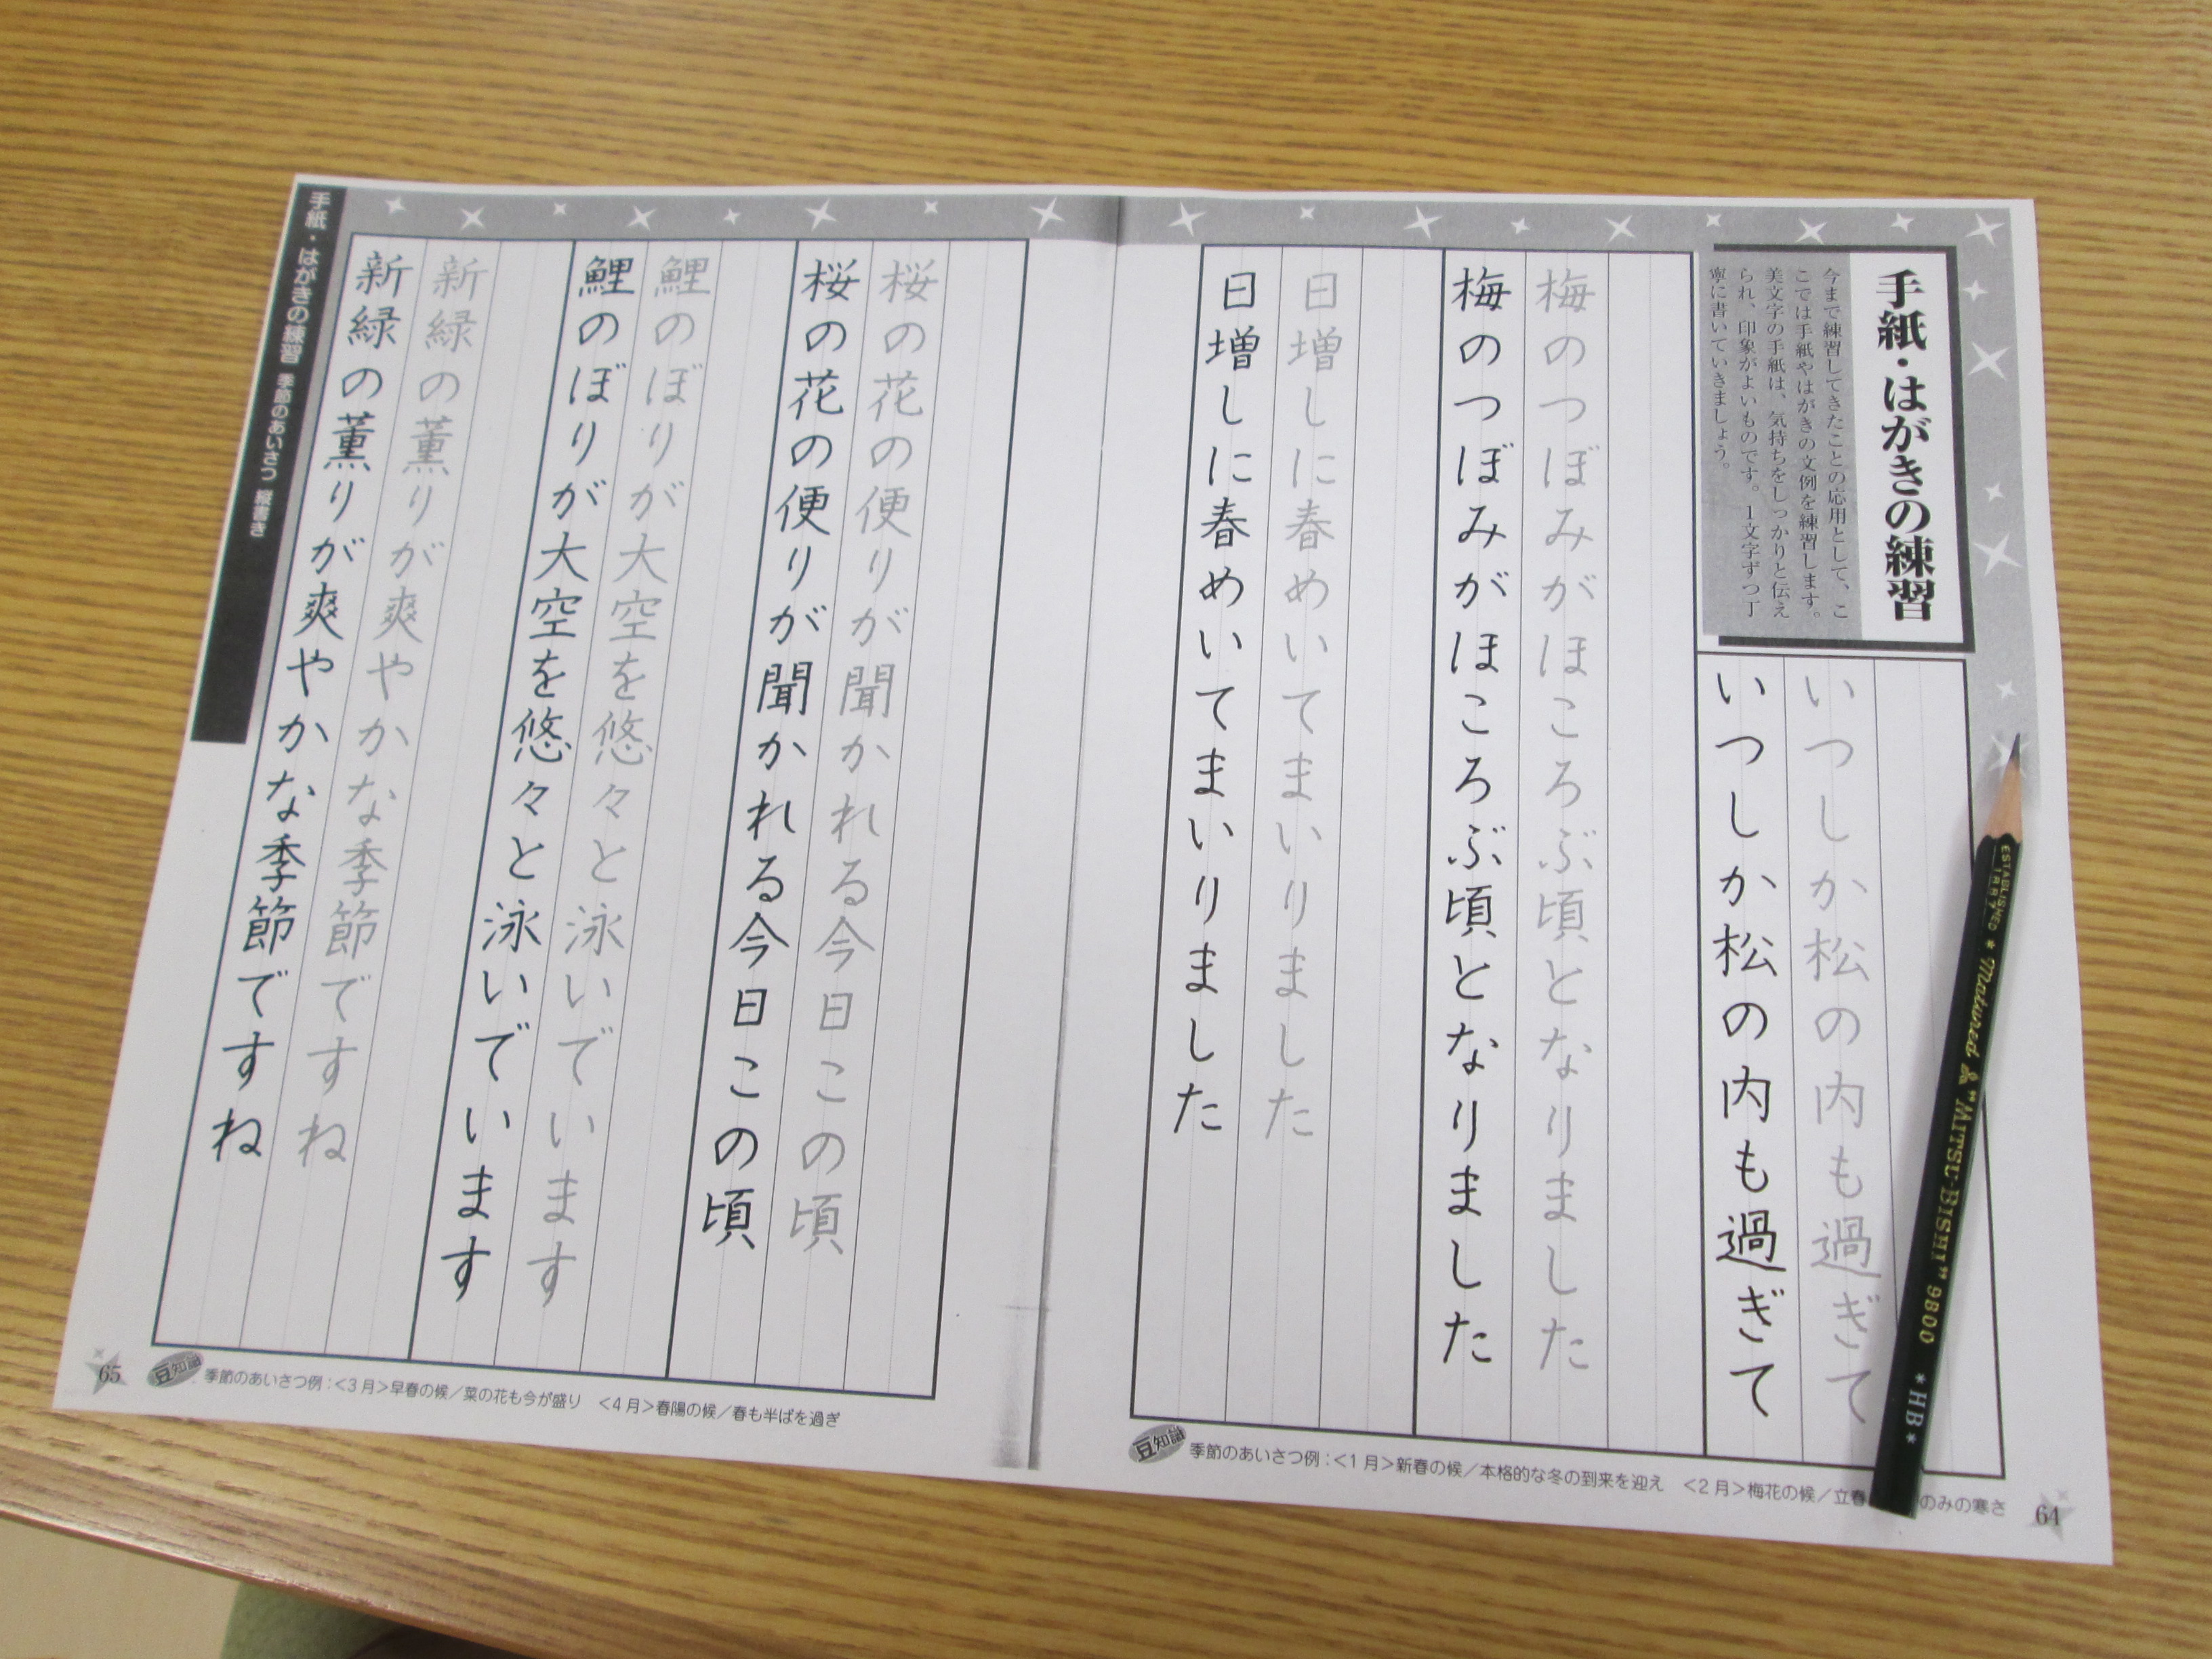 手紙・はがきの練習
今まで練習してきたことの応用として、こ
こでは手紙やはがきの文例を練習します。
美文字の手紙は、気持ちをしっかりと伝え
られ、印象がよいものです。1文字ずつ丁
寧に書いていきましょう。
いつしか松の内も過ぎて
いつしか松の内も過ぎて
梅のつぼみがほころぶ頃となりました
梅のつぼみがほころぶ頃となりました
日増しに春めいてまいりました
日増しに春めいてまいりました
豆知識 季節のあいさつ例:<1月>新春の候/本格的な冬の到来を迎え <2月>梅花の候/立春 のみの寒さ
64
桜の花の便りが聞かれる今日この頃
桜の花の便りが聞かれる今日この頃
鯉のぼりが大空を悠々と泳いでいます
鯉のぼりが大空を悠々と泳いでいます
新緑の薫りが爽やかな季節ですね
新緑の薫りが爽やかな季節ですね
手紙・はがきの練習 季節のあいさつ 縦書き
豆知識 季節のあいさつ例:<3月>早春の候/菜の花も今が盛り <4月>春陽の候/春も半ばを過ぎ
65
ESTABLISHED
1887
* Matured "MITSU-BISHI" 9800 *HB*